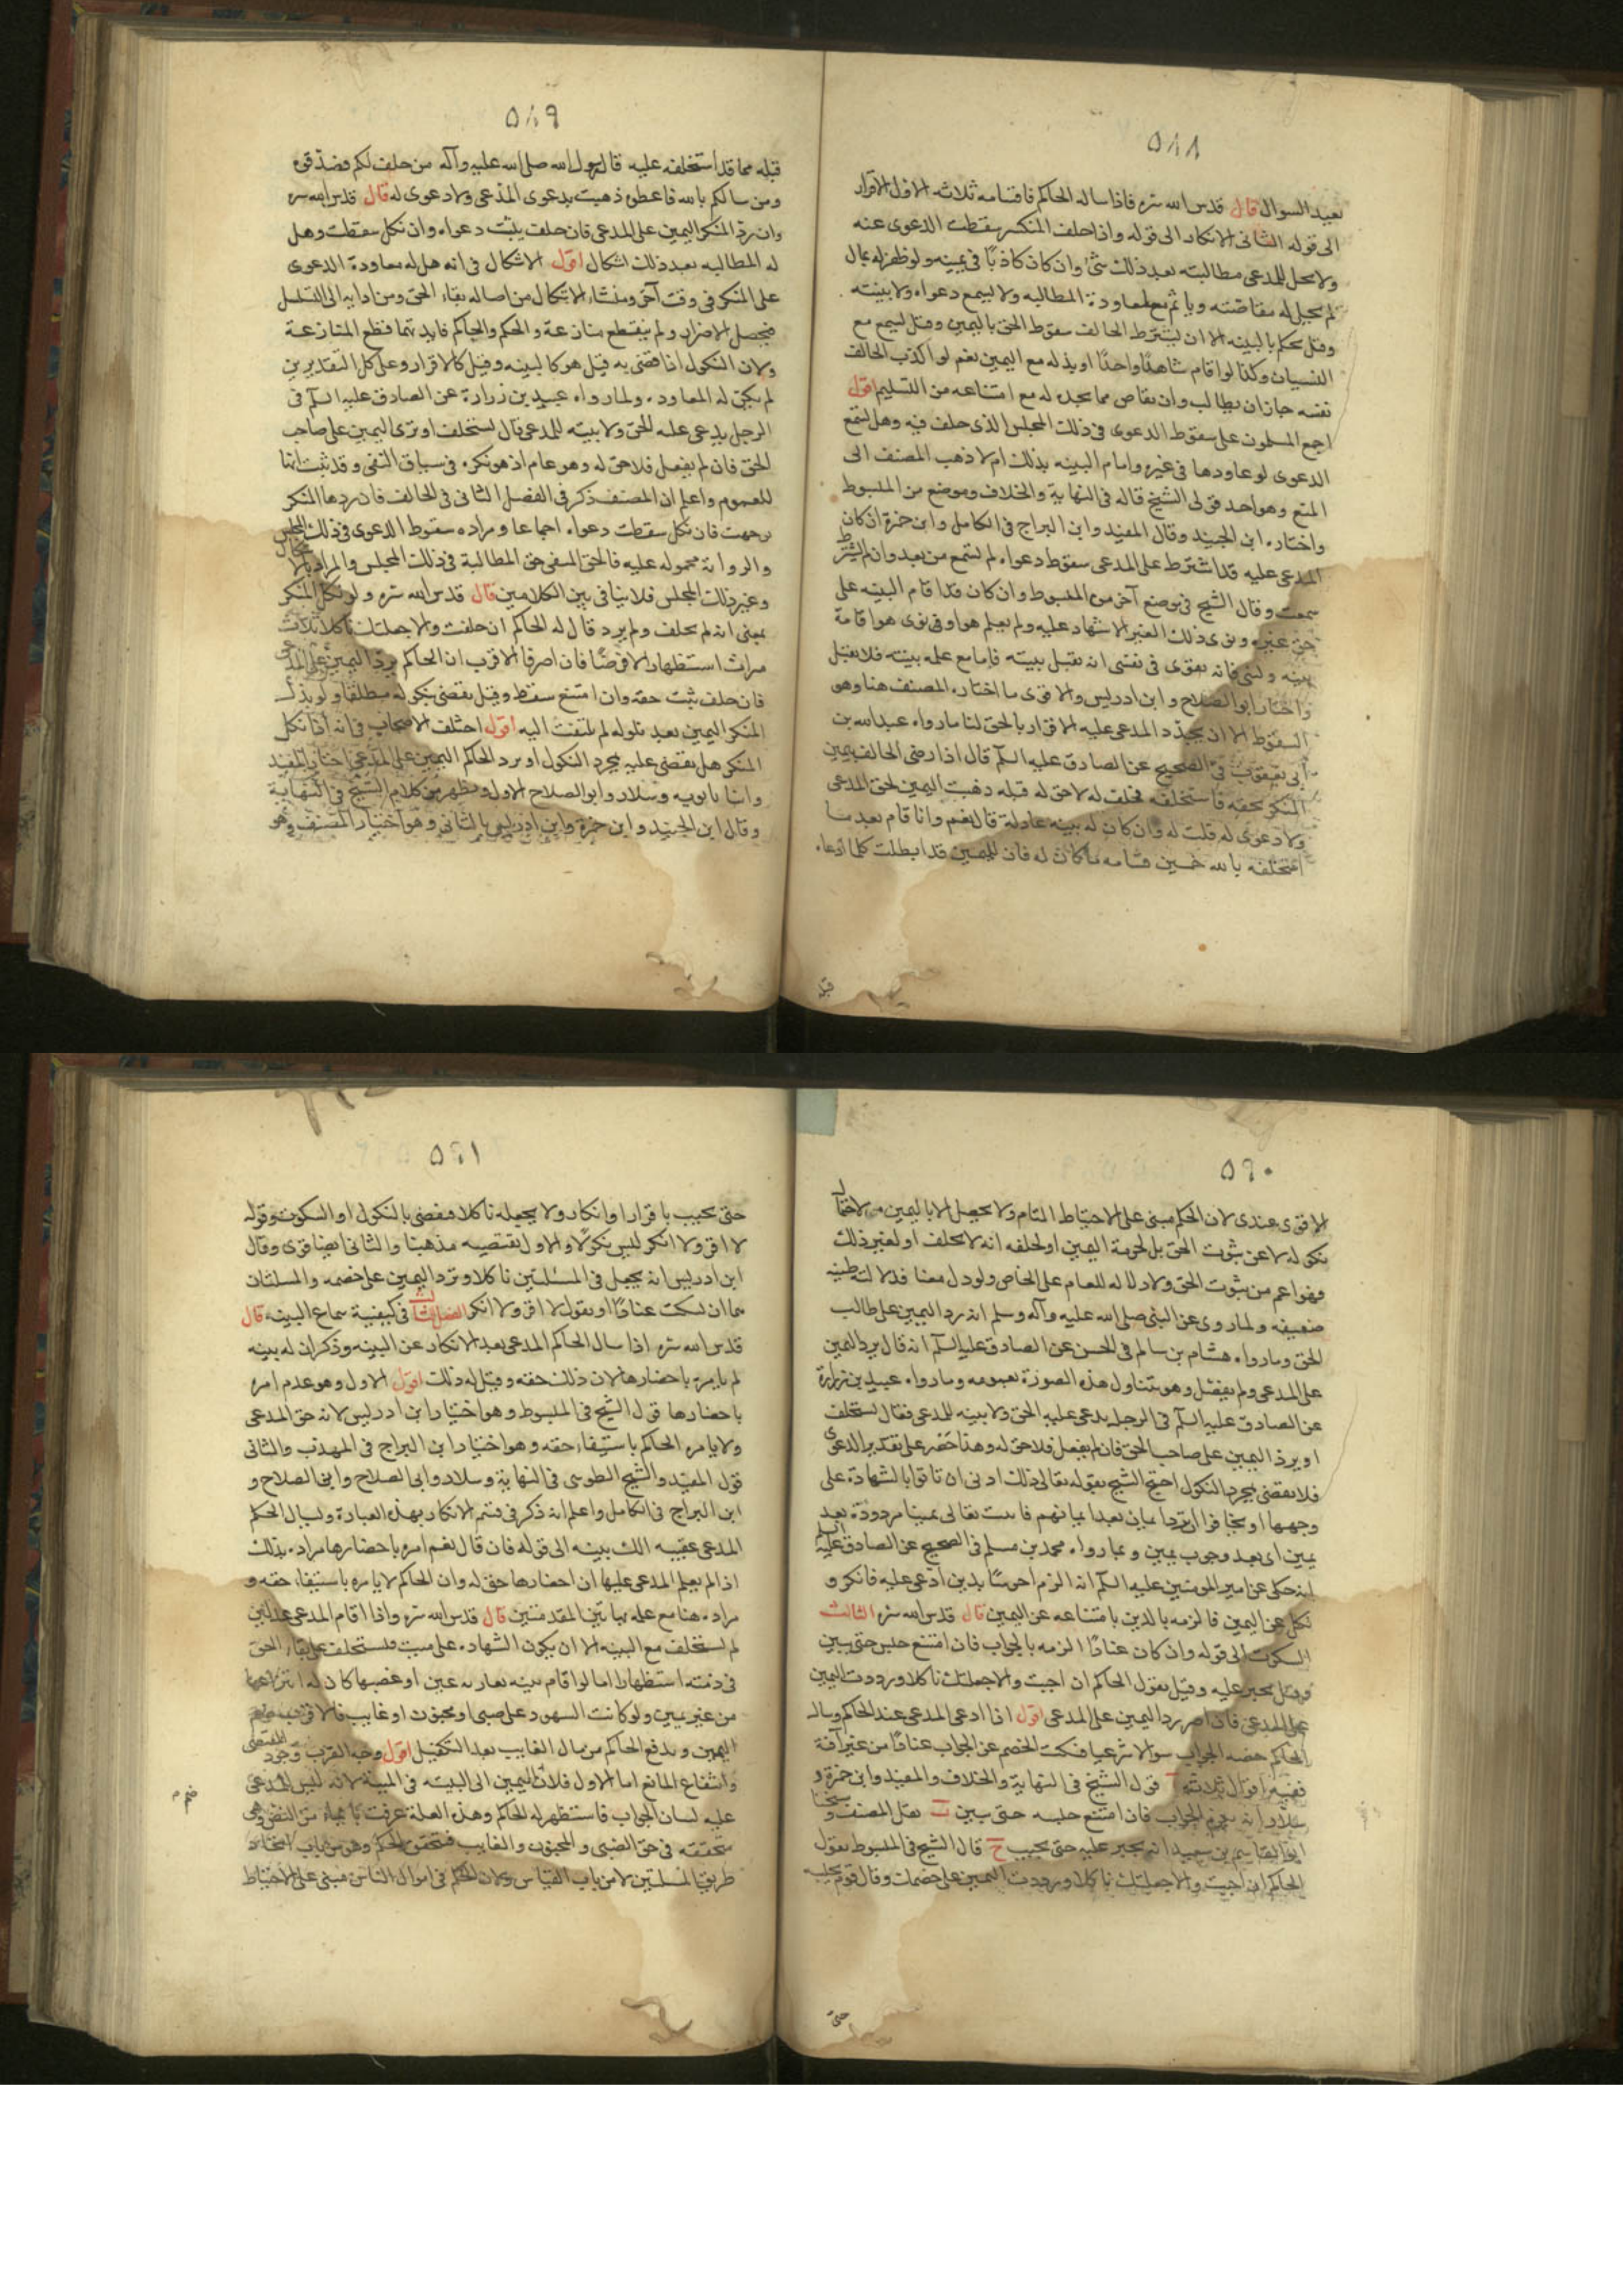 ٥٨٨
يعيد السوال قال قدس الله سره فاذا ساله الحاكم فاقسامه ثلاثه الاول الاقرار
الى قوله الثانى الانكار الى قوله واذا حلف المنكر سقطت الدعوى عنه
ولا يحل للمدعى مطالبته بعد ذلك بشئ وان كان كاذبًا فى يمينه ولو ظفر له بمال
لم يحل له مقاصته وياثم مع معاودة المطالبه ولا يسمع دعواه ولا بينته
وقيل يحكم بالبينه الا ان يشترط الحالف سقوط الحق باليمين وقيل يسمع مع
النسيان وكذا لو اقام شاهدًا واحدًا او بذله مع اليمين نعم لو اكذب الحالف
نفسه جاز ان يطالب وان يقاص مما يجده له مع امتناعه من التسليم اقول
اجمع المسلمون على سقوط الدعوى فى ذلك المجلس الذى حلف فيه وهل تسمع
الدعوى لو عاودها فى غيره واقام البينه بذلك ام لا ذهب المصنف الى
المنع وهو احد قولى الشيخ قاله فى النهاية والخلاف وموضع من المبسوط
واختاره ابن الجنيد وقال المفيد وابن البراج فى الكامل وابن حمزة ان كان
المدعى عليه قد اشترط على المدعى سقوط دعواه لم تسمع من بعد وان لم يشترط
سمعت وقال الشيخ فى موضع آخر من المبسوط وان كان قد اقام البينه على
حق غيره وتولى ذلك الغير الاشهاد عليه ولم يعلم هو او تولى هو اقامة
بينه ونسى فانه يقوى فى نفسى انه تقبل بينته فاما مع علمه ببينته فلا تقبل
واختار ابو الصلاح وابن ادريس والاقوى ما اختاره المصنف هنا وهو
السقوط الا ان يجدد المدعى عليه الاقرار بالحق لنا ما رواه عبد الله بن
ابى يعفور فى الصحيح عن الصادق عليه السلم قال اذا رضى الحالف بيمين
المنكر بحقه فاستحلفه فحلف له لا حق له قبله ذهبت اليمين بحق المدعى
ولا دعوى له قلت له وان كان له بينه عادلة قال نعم وان اقام بعد ما
استحلفه بالله خمسين قسامه ما كان له فان اليمين قد ابطلت كلما ادعاه
قبله
٥٨٩
قبله مما قد استحلفه عليه قال رسول الله صلى الله عليه وآله من حلف لكم فصدقوه
ومن سالكم بالله فاعطوه ذهبت بدعوى المدعى ولا دعوى له قال قدس الله سره
وان رد المنكر اليمين على المدعى فان حلف يثبت دعواه وان نكل سقطت وهل
له المطالبه بعد ذلك اشكال اقول الاشكال فى انه هل له معاودة الدعوى
على المنكر فى وقت آخر ومنشاء الاشكال من اصاله بقاء الحق ومن ادايه الى التسلسل
فيحصل الاضرار ولم ينقطع منازعة والحكم والحاكم فايدتهما قطع المنازعة
ولان النكول اذا قضى به قيل هو كالبينه وقيل كالاقرار وعلى كل التقديرين
لم يكن له المعاوده ولما رواه عبيد بن زرارة عن الصادق عليه السلم فى
الرجل يدعى عليه الحق ولا بينه للمدعى قال يستحلف او ترد اليمين على صاحب
الحق فان لم يفعل فلا حق له وهو عام اذ هو نكره فى سياق النفى وقد ثبت انها
للعموم واعلم ان المصنف ذكر فى الفصل الثانى فى الحالف فان ردها المنكر
توجهت فان نكل سقطت دعواه اجماعا ومراده سقوط الدعوى فى ذلك المجلس
والرواية محموله عليه فالحق المنفى حق المطالبة فى ذلك المجلس والمراد بالاشكال
فى غير ذلك المجلس فلا ينافى بين الكلامين قال قدس الله سره ولو نكل المنكر
بمعنى انه لم يحلف ولم يرد قال له الحاكم ان حلفت والا جعلتك ناكلا ثلاث
مرات استظهارا لا فرضًا فان اصر فالاقرب ان الحاكم يرد اليمين على المدعى
فان حلف ثبت حقه وان امتنع سقط وقيل يقضى بنكوله مطلقا ولو بذل
المنكر اليمين بعد نكوله لم يلتفت اليه اقول اختلف الاصحاب فى انه اذا نكل
المنكر هل يقضى عليه بمجرد النكول او يرد الحاكم اليمين على المدعى اختار المفيد
وابنا بابويه وسلار وابو الصلاح الاول ويظهر من كلام الشيخ فى النهاية
وقال ابن الجنيد وابن حمزة وابن ادريس بالثانى وهو اختيار المصنف وهو
٥٩٠
الاقوى عندى لان الحكم مبنى على الاحتياط التام ولا يحصل الا باليمين ولاحتمال
نكوله لا عن ثبوت الحق بل لحرمة اليمين او لحلفه انه لا يحلف او لغير ذلك
فهو اعم من ثبوت الحق ولا دلاله للعام على الخاص ولو دل معنا فدلالته ظنيه
ضعيفه ولما روى عن النبى صلى الله عليه وآله وسلم انه رد اليمين على طالب
الحق وما رواه هشام بن سالم فى الحسن عن الصادق عليه السلم انه قال يرد اليمين
على المدعى ولم يفصل وهو يتناول هذه الصورة بعمومه وما رواه عبيد بن زرارة
عن الصادق عليه السلم فى الرجل يدعى عليه الحق ولا بينه للمدعى فقال يستحلف
او يرد اليمين على صاحب الحق فان لم يفعل فلا حق له وهذا حصر على تقدير الدعوى
فلا يقضى بمجرد النكول احتج الشيخ بقوله تعالى ذلك ادنى ان تاتوا بالشهادة على
وجهها او يخافوا ان ترد ايمان بعد ايمانهم فاثبت تعالى يمينا مردودة بعد
يمين اى بعد وجوب يمين وبما رواه محمد بن مسلم فى الصحيح عن الصادق عليه السلم
انه حكى عن امير المومنين عليه السلم انه الزم اخرسًا بدين ادعى عليه فانكر و
نكل عن اليمين فالزمه بالدين بامتناعه عن اليمين قال قدس الله سره الثالث
السكوت الى قوله وان كان عنادًا الزمه بالجواب فان امتنع حبس حتى يبين
وقيل يجبر عليه وقيل يقول الحاكم ان اجبت والا جعلتك ناكلا ورددت اليمين
على المدعى فان اصر رد اليمين على المدعى اقول اذا ادعى المدعى عند الحاكم وسال
الحاكم خصمه الجواب سوالا شرعيا فسكت الخصم عن الجواب عنادًا من غير آفة
ففيه اقوال ثلاثة ا قول الشيخ فى النهاية والخلاف والمفيد وابن حمزة و
سلار انه يلزمه الجواب فان امتنع حبسه حتى يبين ب نقل المصنف وشيخنا
ابو القاسم بن سعيد انه يجبر عليه حتى يجيب ج قال الشيخ فى المبسوط يقول
الحاكم ان اجبت والا جعلتك ناكلا ورددت اليمين على خصمك وقال قوم يحبسه
حتى
٥٩١
حتى يجيب باقرار او انكار ولا يجعله ناكلا فيقضى بالنكول او السكوت وقوله
لا اقر ولا انكر ليس بنكول والاول يقتضيه مذهبنا والثانى ايضا قوى وقال
ابن ادريس انه يجعل فى المسئلتين ناكلا وترد اليمين على خصمه والمسئلتان
هما ان يسكت عنادًا او يقول لا اقر ولا انكر الفصل الثالث فى كيفية سماع البينه قال
قدس الله سره اذا سال الحاكم المدعى بعد الانكار عن البينه وذكر ان له بينه
لم يامره باحضارها لان ذلك حقه وقيل له ذلك اقول الاول وهو عدم امره
باحضارها قول الشيخ فى المبسوط وهو اختيار ابن ادريس لانه حق المدعى
ولا يامره الحاكم باستيفاء حقه وهو اختيار ابن البراج فى المهذب والثانى
قول المفيد والشيخ الطوسى فى النهاية وسلار وابى الصلاح وابى الصلاح و
ابن البراج فى الكامل واعلم انه ذكر فى قسم الانكار بهذه العبارة ويسال الحاكم
المدعى عقيبه الك بينه الى قوله فان قال نعم امره باحضارها مراده بذلك
اذا لم يعلم المدعى عليها ان احضارها حق له وان الحاكم لا يامره باستيفاء حقه و
مراده هنا مع علمه بهاتين المقدمتين قال قدس الله سره واذا اقام المدعى عدلين
لم يستحلف مع البينه الا ان يكون الشهاده على ميت فيستحلف على بقاء الحق
فى ذمته استظهارا اما لو اقام بينه بعاريه عين او غصبها كان له انتزاعها
من غير يمين ولو كانت الشهود على صبى او مجنون او غايب فالاقرب ضم
اليمين ويدفع الحاكم من مال الغايب بعد التكفيل اقول وجه القرب وجود المقتضى
وانتفاع المانع اما الاول فلان اليمين الى البينه فى الميت لانه ليس للمدعى
عليه لسان الجواب فاستظهر له الحاكم وهذه العلة عرفت بايماء من النص وهى
متحققه فى حق الصبى والمجنون والغايب فيتحقق الحكم وهو من باب اتحاد
طريق المسئلتين لا من باب القياس ولان الحكم فى اموال الناس مبنى على الاحتياط
ضم م